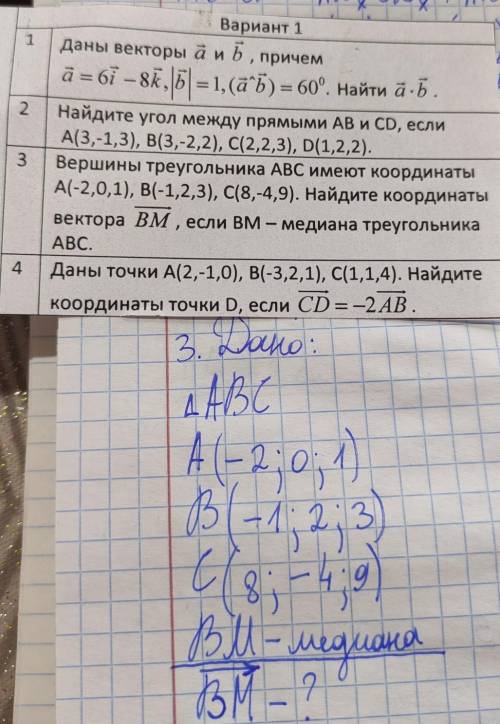 Вариант 1
1 Даны векторы a⃗ и b⃗ , причем
a⃗ = 6i⃗ − 8k⃗, |b⃗| = 1, (a⃗^b⃗) = 60⁰. Найти a⃗ · b⃗ .
2 Найдите угол между прямыми АВ и CD, если
А(3,-1,3), В(3,-2,2), С(2,2,3), D(1,2,2).
3 Вершины треугольника АВС имеют координаты
А(-2,0,1), В(-1,2,3), С(8,-4,9). Найдите координаты
вектора BM⃗ , если ВМ – медиана треугольника
АВС.
4 Даны точки А(2,-1,0), В(-3,2,1), С(1,1,4). Найдите
координаты точки D, если CD⃗ = −2AB⃗ .
3. Дано:
△ABC
A(−2; 0; 1)
B(−1; 2; 3)
C(8; −4; 9)
BM − медиана
BM⃗ − ?